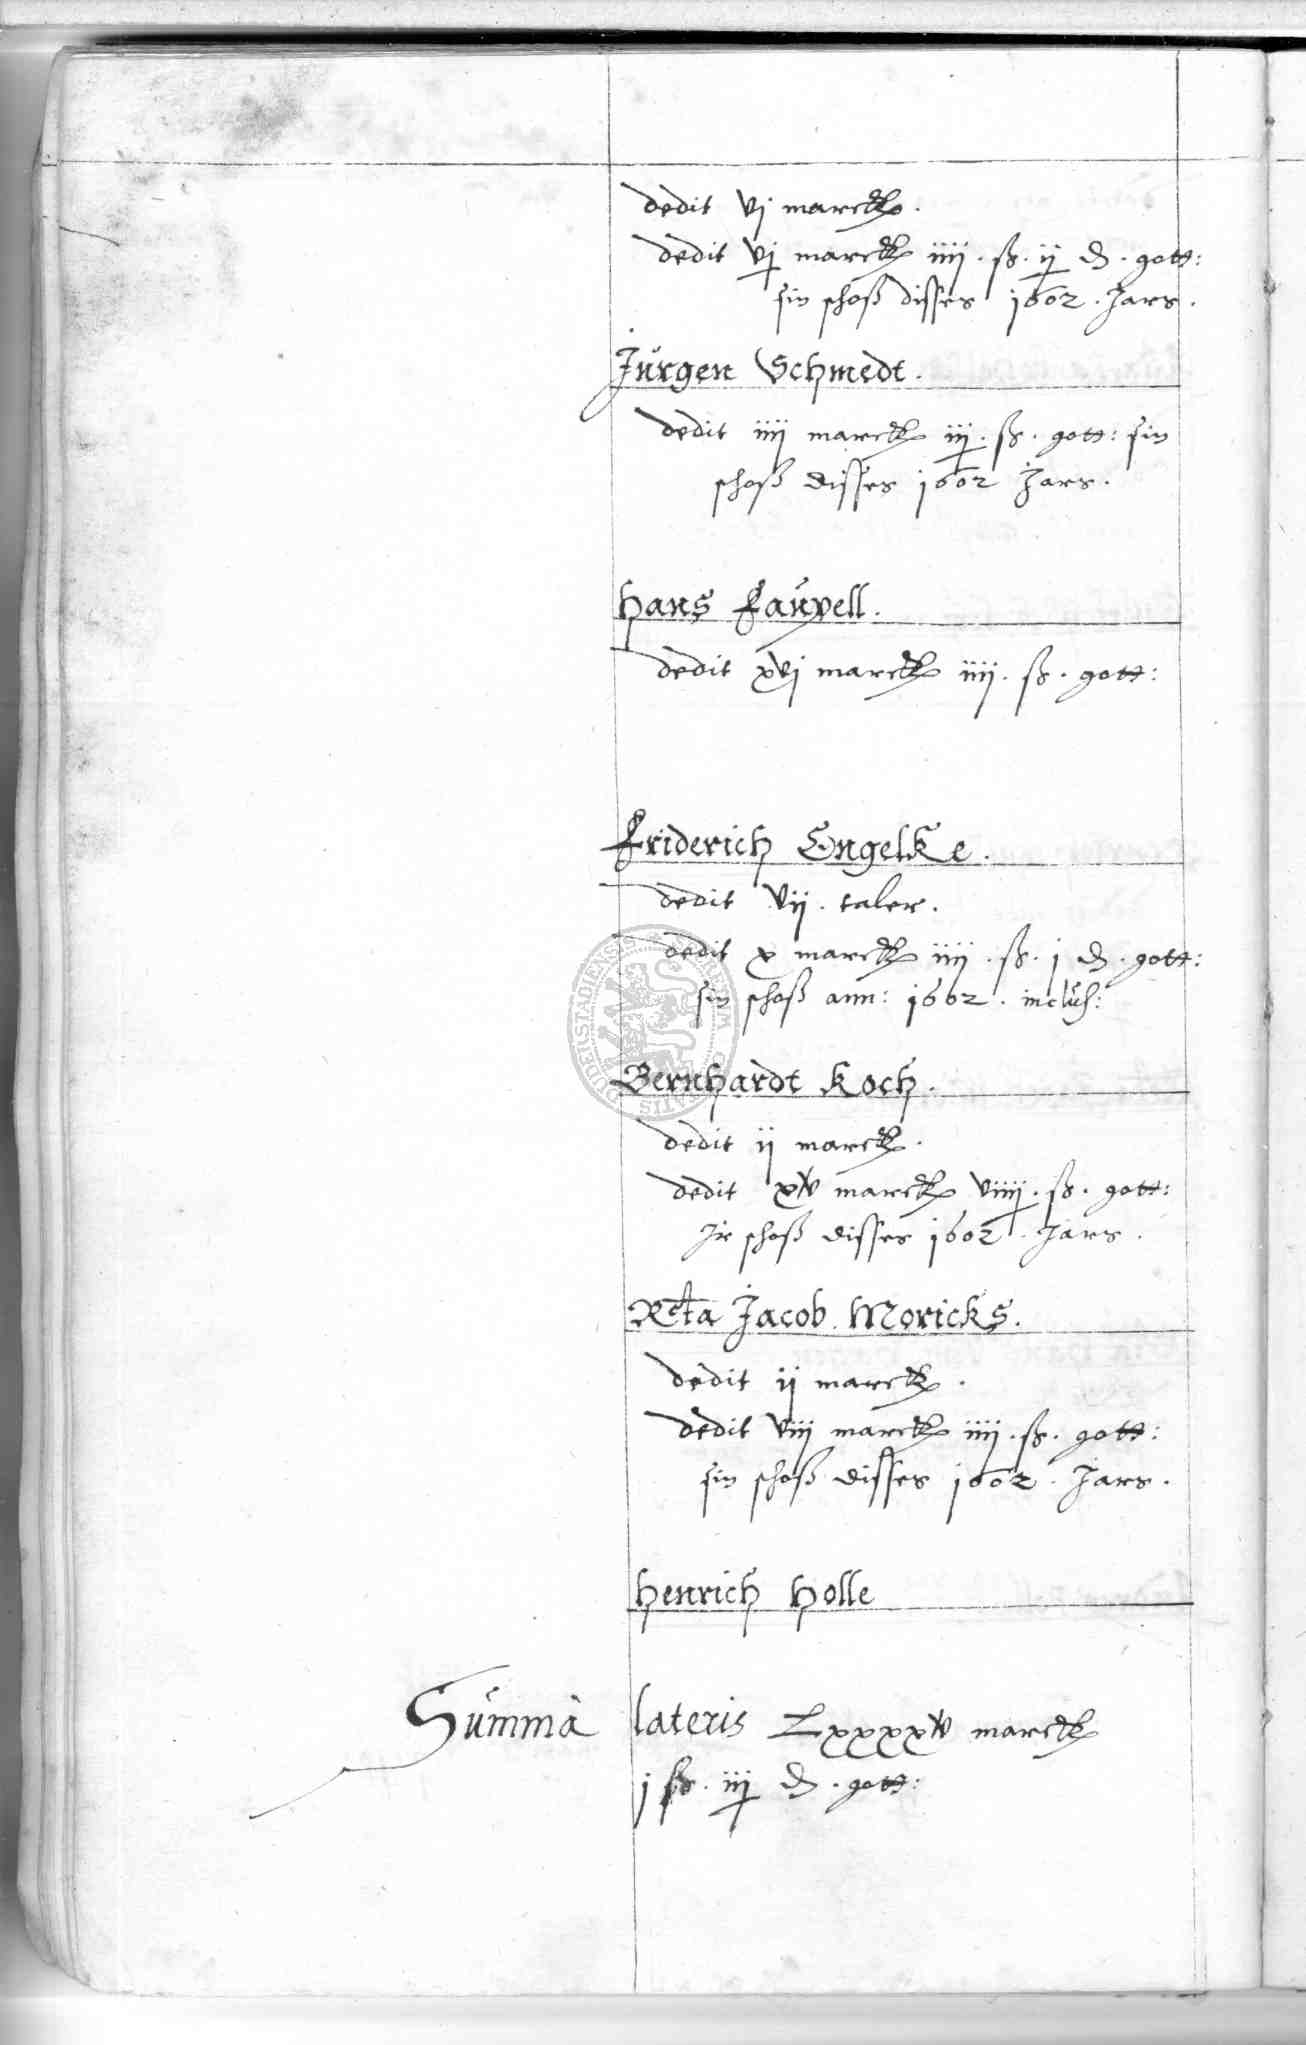 dedit vj marck.
dedit vj marck iiij. ß. ij d. gott:
sin schoß disses 1602. Jars.
Jürgen Schmedt.
dedit iiij marck iij. ß. gott: sin
schoß disses 1602 Jars.
Hans Faüpell.
dedit xvj marck iiij. ß. gott:
Friderich Engelke.
dedit vij. taler.
dedit x marck iiij. ß. j d. gott:
sin schoß ann: 1602. inclus:
Bernhardt Koch.
dedit ij marck.
dedit xv marck viiij. ß. gott:
Ir schoß disses 1602. Jars.
Rcta Jacob Moricks.
dedit ij marck.
dedit viij marck iiij. ß. gott:
sin schoß disses 1602. Jars.
Henrich Holle
Summa lateris Lxxxxv marck
j ß. iij d. gott: